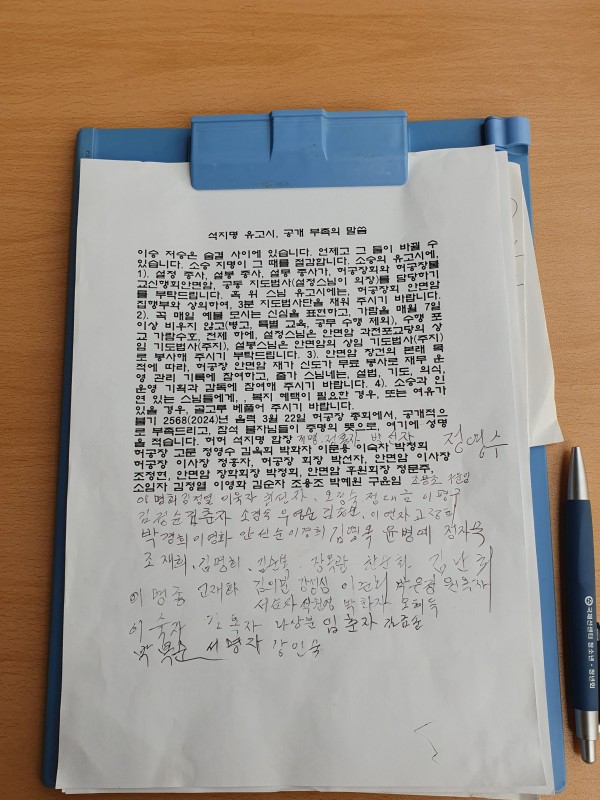 석지명 유고시, 공개 부촉의 말씀
이승 저승은 숨길 사이에 있습니다. 언제고 그 둘이 바뀔 수
있습니다. 소승 지명이 그 때를 절감합니다. 소승의 유고시에,
1). 설정 종사, 설봉 종사, 설룡 종사가, 허공장회와 허공장불
교신행회안면암, 공동 지도법사(설정스님이 의장)를 담당하기
를 부탁드립니다. 혹 위 스님 유고시에는, 허공장회 안면암
집행부와 상의하여, 3분 지도법사단을 채워 주시기 바랍니다.
2). 꼭 매일 예불 모시는 신심을 표현하고, 가람을 매월 7일
이상 비우지 않고(병고, 특별 교육, 공무 수행 제외), 수행 포
교 가람수호, 전제 하에, 설정스님은 안면암 과천포교당의 상
임 지도법사(주지), 설봉스님은 안면암의 상임 기도법사(주지)
로 봉사해 주시기 부탁드립니다. 3). 안면암 창건의 본래 목
적에 따라, 허공장 안면암 재가 신도가 무료 봉사로 재무 운
영 관리 기록에 참여하고, 출가 스님네는, 설법, 기도, 의식,
운영 기획과 감독에 참여해 주시기 바랍니다. 4). 소승과 인
연 있는 스님들에게, , 복지 혜택이 필요한 경우, 또는 여유가
있을 경우, 골고루 베풀어 주시기 바랍니다.
불기 2568(2024)년 음력 3월 22일 허공장 총회에서, 공개적으
로 부촉드리고, 참석 불자님들이 증명의 뜻으로, 여기에 성명
을 적습니다. 허허 석지명 합장 정영수
허공장 고문 정영수 김옥희 박화자 이문용 이숙자 박정희
허공장 이사장 정홍자, 허공장 회장 박선자, 안면암 이사장
조정현, 안면암 장학회장 박정희, 안면암 후원회장 정문주,
소임자 김정열 이영화 김순자 조용조 박혜원 구윤임 조용조 구윤임
이명화 김정열 이옥자
김정순 김춘자
박경희 이영화 안선순 이정희 김명옥 윤병예 정자옥
조재희 김명희 김순복 김난희
이명종 김이분 강성심 박은경
박화자
이숙자 나상분 임춘자
서명자 강인숙
국제선센터 청소년·청년원